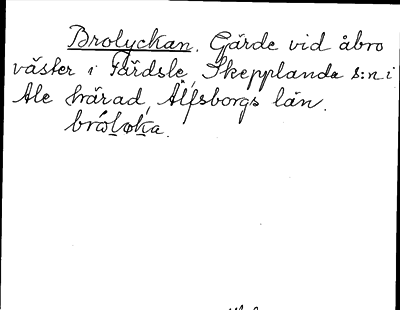 Brolyckan. Gärde vid åbro
väster i Färdsle, Skepplanda s:n i
Ale härad, Älfsborgs län.
bròlo̱ka.